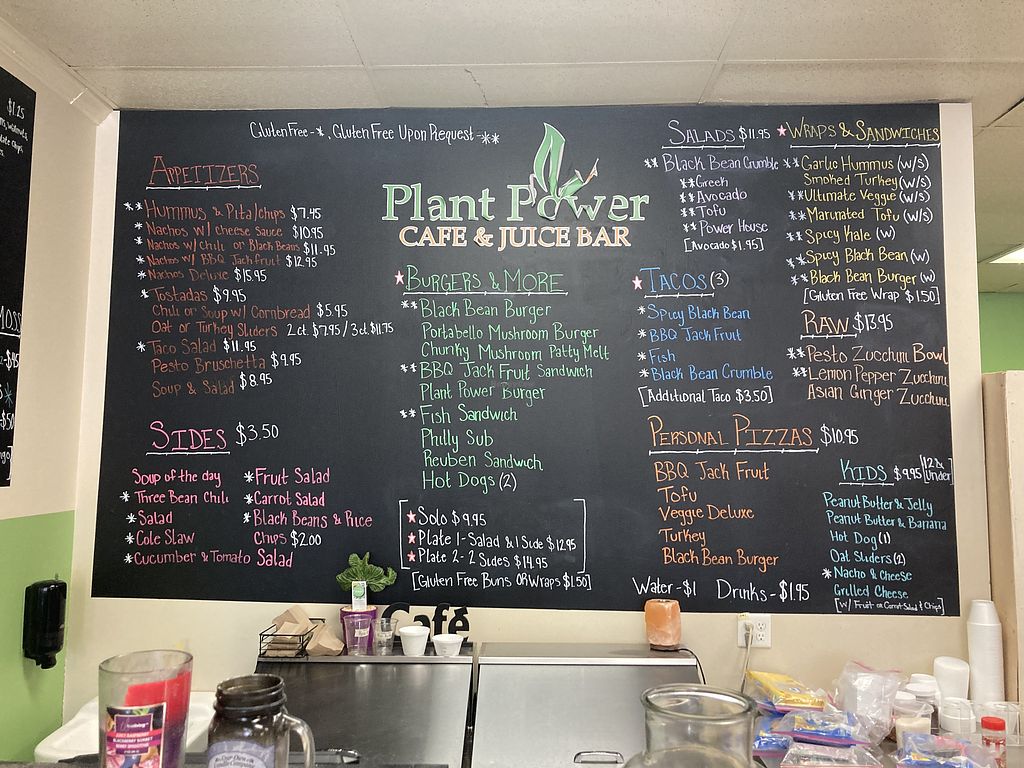 $1.25
Gluten Free - * , Gluten Free Upon Request - **
Plant Power
CAFE & JUICE BAR
APPETIZERS
** Hummus & Pita/chips $7.45
* Nachos w/ cheese sauce $10.95
* Nachos w/ chili or Black Beans $11.95
* Nachos w/ BBQ Jackfruit $12.95
* Nachos Deluxe $15.95
* Tostadas $9.95
Chili or Soup w/ Cornbread $5.95
Oat or Turkey Sliders 2ct. $7.95 / 3ct. $11.75
* Taco Salad $11.95
Pesto Bruschetta $9.95
Soup & Salad $8.95
SIDES $3.50
Soup of the day
* Three Bean Chili
* Salad
* Cole Slaw
* Cucumber & Tomato Salad
* Fruit Salad
* Carrot Salad
* Black Beans & Rice
Chips $2.00
★ BURGERS & MORE
** Black Bean Burger
Portabello Mushroom Burger
Chunky Mushroom Patty Melt
** BBQ Jack Fruit Sandwich
Plant Power Burger
** Fish Sandwich
Philly Sub
Reuben Sandwich
Hot Dogs (2)
★ Solo $9.95
★ Plate 1 - Salad & 1 Side $12.95
★ Plate 2 - 2 Sides $14.95
[Gluten Free Buns OR Wraps $1.50]
SALADS $11.95
** Black Bean Crumble
** Greek
** Avocado
** Tofu
** Power House
[Avocado $1.95]
★ TACOS (3)
* Spicy Black Bean
* BBQ Jack Fruit
* Fish
* Black Bean Crumble
[Additional Taco $3.50]
PERSONAL PIZZAS $10.95
BBQ Jack Fruit
Tofu
Veggie Deluxe
Turkey
Black Bean Burger
Water - $1 Drinks - $1.95
★ WRAPS & SANDWICHES
** Garlic Hummus (w/s)
Smoked Turkey (w/s)
** Ultimate Veggie (w/s)
** Marinated Tofu (w/s)
** Spicy Kale (w)
** Spicy Black Bean (w)
** Black Bean Burger (w)
[Gluten Free Wrap $1.50]
RAW $13.95
** Pesto Zucchini Bowl
** Lemon Pepper Zucchini
Asian Ginger Zucchini
KIDS $9.95 [12 & Under]
Peanut Butter & Jelly
Peanut Butter & Banana
Hot Dog (1)
Oat Sliders (2)
* Nacho & Cheese
Grilled Cheese
[w/ Fruit or Carrot Salad & Chips]
Café